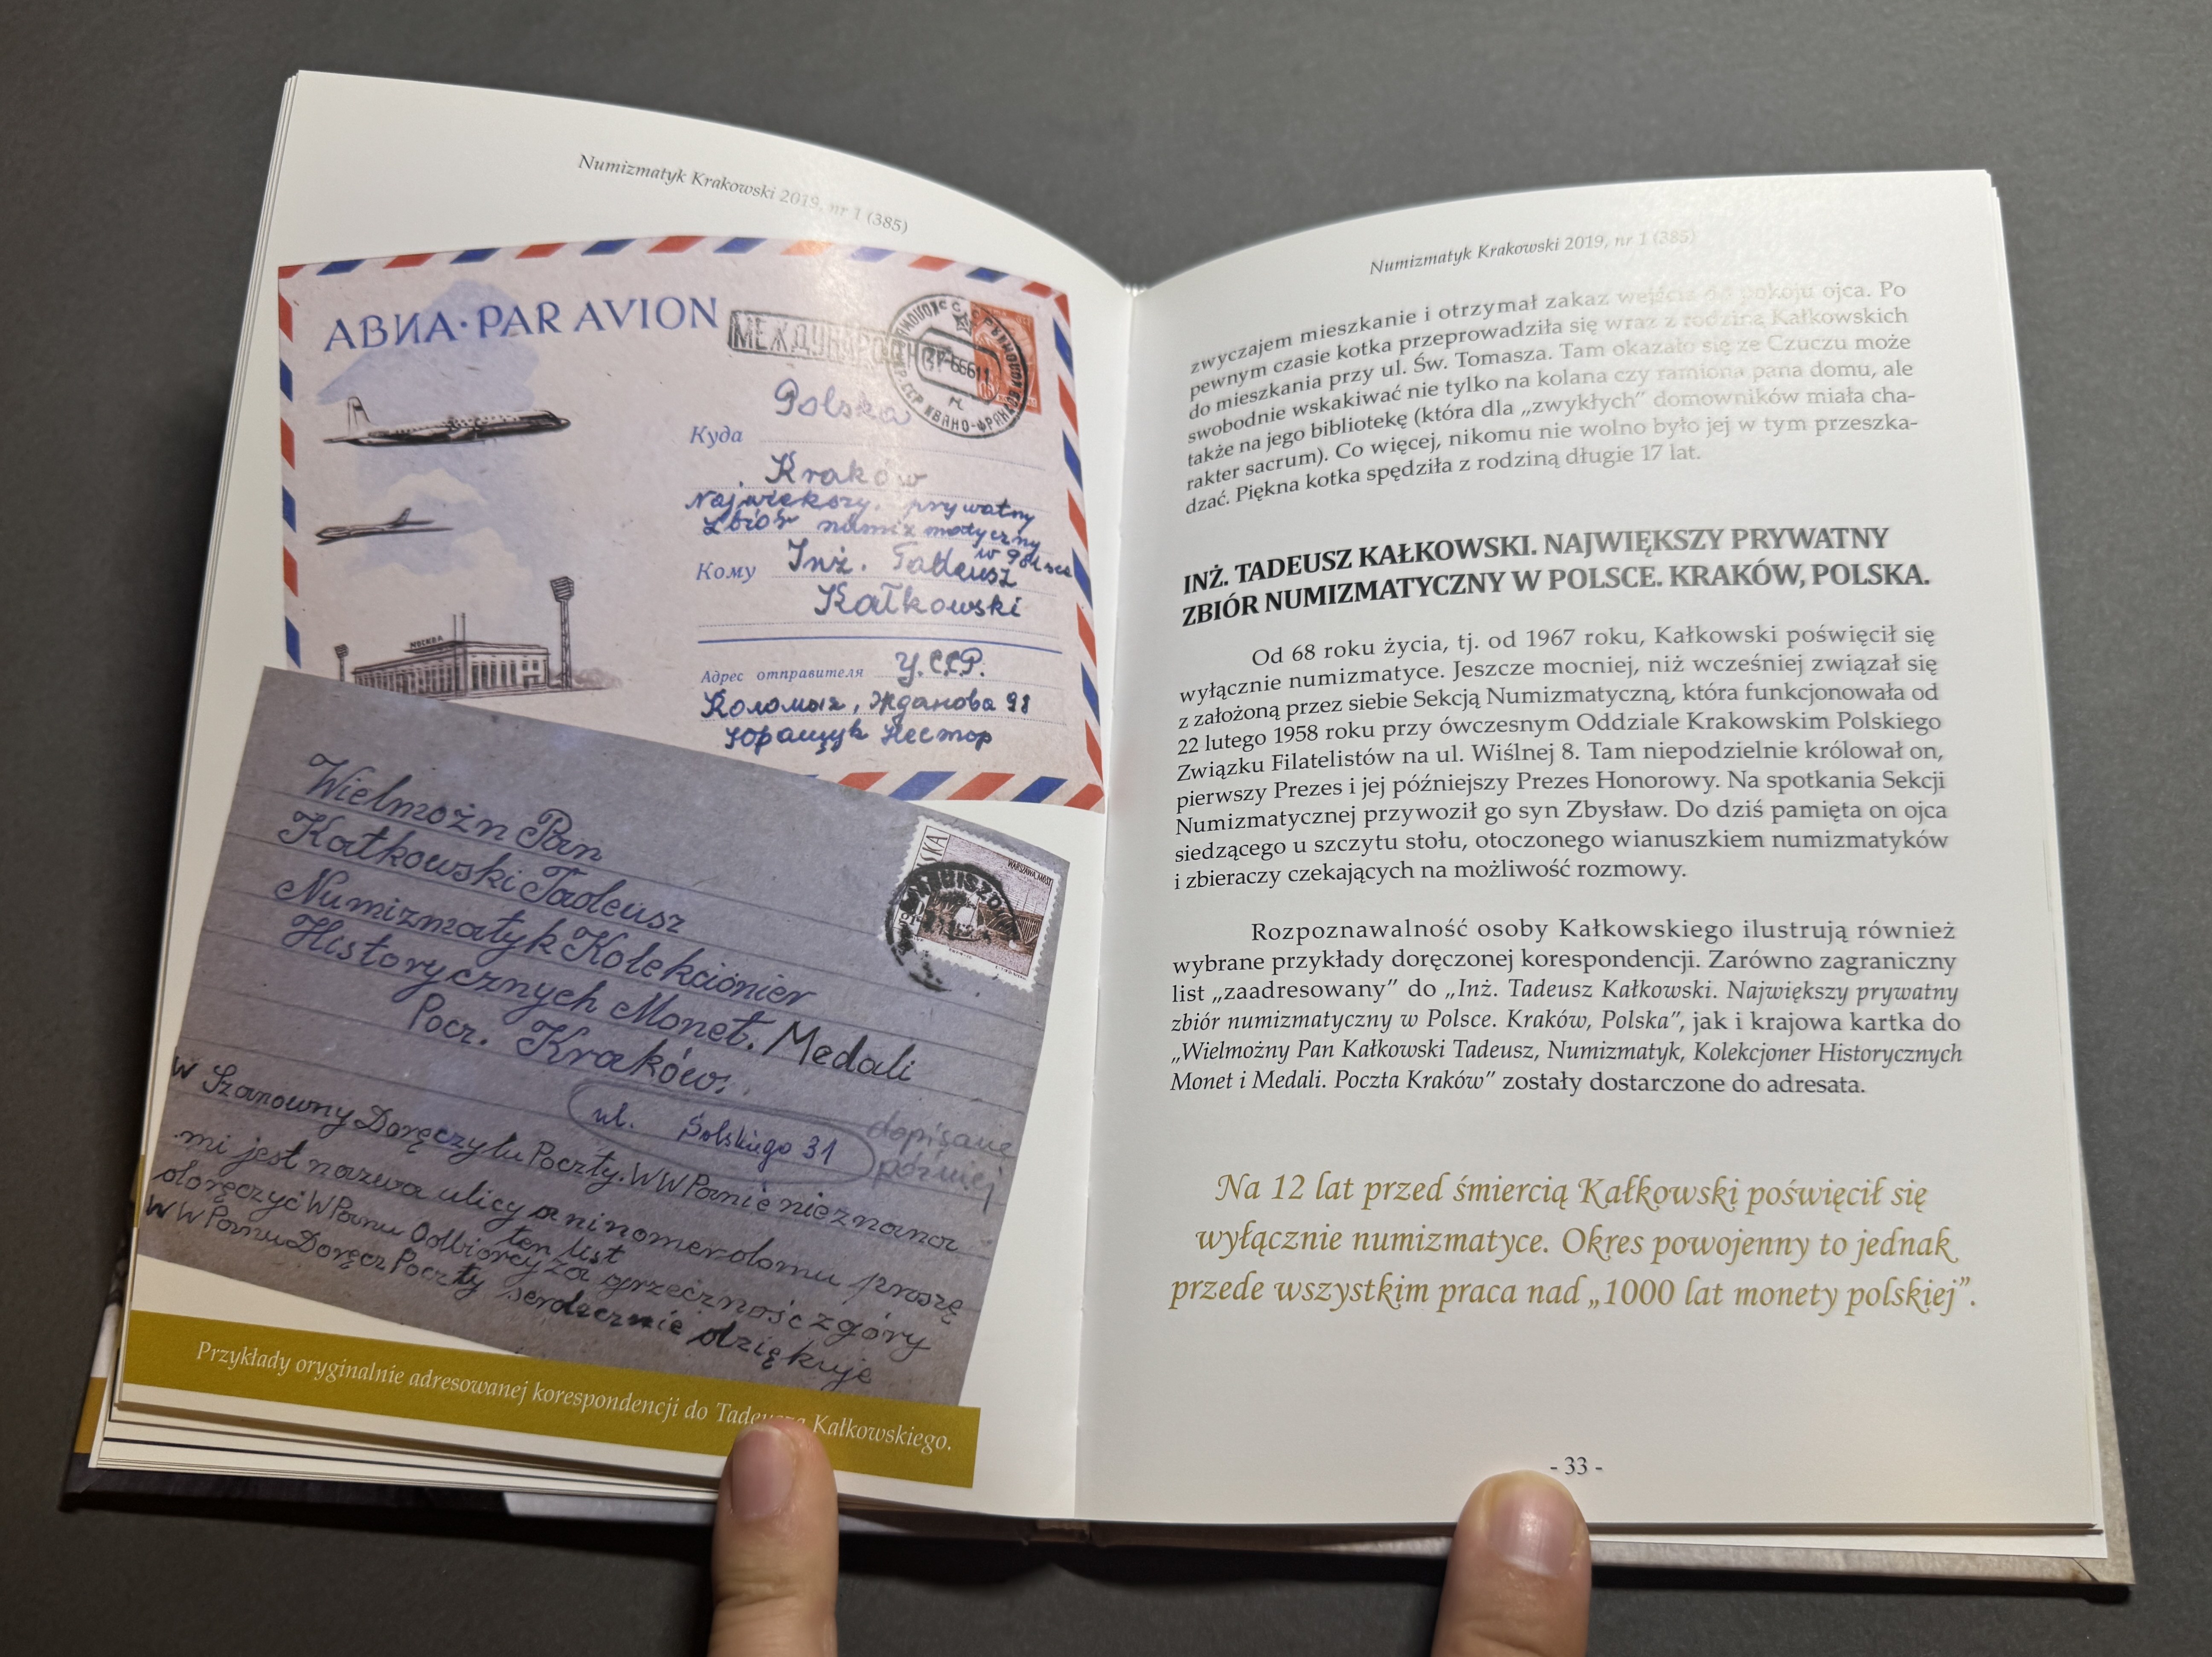 Numizmatyk Krakowski 2019, nr 1 (385)
АВИА·PAR AVION
МЕЖДУНАРО
Polska
Куда
Kraków
Największy prywatny
Zbiór numizmatyczny
w Polsce
Кому Inż. Tadeusz
Kałkowski
МОСКВА
Адрес отправителя У.ССР.
Коломыя, Жданова 98
Юращук Нестор
Wielmożn Pan
Kałkowski Tadeusz
Numizmatyk Kolekcionier
Historycznych Monet. Medali
Pocz. Kraków.
ul. Solskiego 31
dopisane
później
W Szanowny Doręczylu Poczty. WWPanie nieznana
mi jest nazwa ulicy a ni nomer domu proszę
ten list
doręczyć WPanu Odbiorcy za grzeczność zgóry
WWPanu Doręcz Poczty serdecznie dziękuje
WARSZAWA MOST
Przykłady oryginalnie adresowanej korespondencji do Kałkowskiego.
Numizmatyk Krakowski 2019, nr 1 (385)
zwyczajem mieszkanie i otrzymał zakaz wejścia do pokoju ojca. Po
pewnym czasie kotka przeprowadziła się wraz z rodziną Kałkowskich
do mieszkania przy ul. Św. Tomasza. Tam okazało się ze Czuczu może
swobodnie wskakiwać nie tylko na kolana czy ramiona pana domu, ale
także na jego bibliotekę (która dla „zwykłych” domowników miała cha-
rakter sacrum). Co więcej, nikomu nie wolno było jej w tym przeszka-
dzać. Piękna kotka spędziła z rodziną długie 17 lat.
INŻ. TADEUSZ KAŁKOWSKI. NAJWIĘKSZY PRYWATNY
ZBIÓR NUMIZMATYCZNY W POLSCE. KRAKÓW, POLSKA.
Od 68 roku życia, tj. od 1967 roku, Kałkowski poświęcił się
wyłącznie numizmatyce. Jeszcze mocniej, niż wcześniej związał się
z założoną przez siebie Sekcją Numizmatyczną, która funkcjonowała od
22 lutego 1958 roku przy ówczesnym Oddziale Krakowskim Polskiego
Związku Filatelistów na ul. Wiślnej 8. Tam niepodzielnie królował on,
pierwszy Prezes i jej późniejszy Prezes Honorowy. Na spotkania Sekcji
Numizmatycznej przywoził go syn Zbysław. Do dziś pamięta on ojca
siedzącego u szczytu stołu, otoczonego wianuszkiem numizmatyków
i zbieraczy czekających na możliwość rozmowy.
Rozpoznawalność osoby Kałkowskiego ilustrują również
wybrane przykłady doręczonej korespondencji. Zarówno zagraniczny
list „zaadresowany” do „Inż. Tadeusz Kałkowski. Największy prywatny
zbiór numizmatyczny w Polsce. Kraków, Polska”, jak i krajowa kartka do
„Wielmożny Pan Kałkowski Tadeusz, Numizmatyk, Kolekcjoner Historycznych
Monet i Medali. Poczta Kraków” zostały dostarczone do adresata.
Na 12 lat przed śmiercią Kałkowski poświęcił się
wyłącznie numizmatyce. Okres powojenny to jednak
przede wszystkim praca nad „1000 lat monety polskiej”.
- 33 -